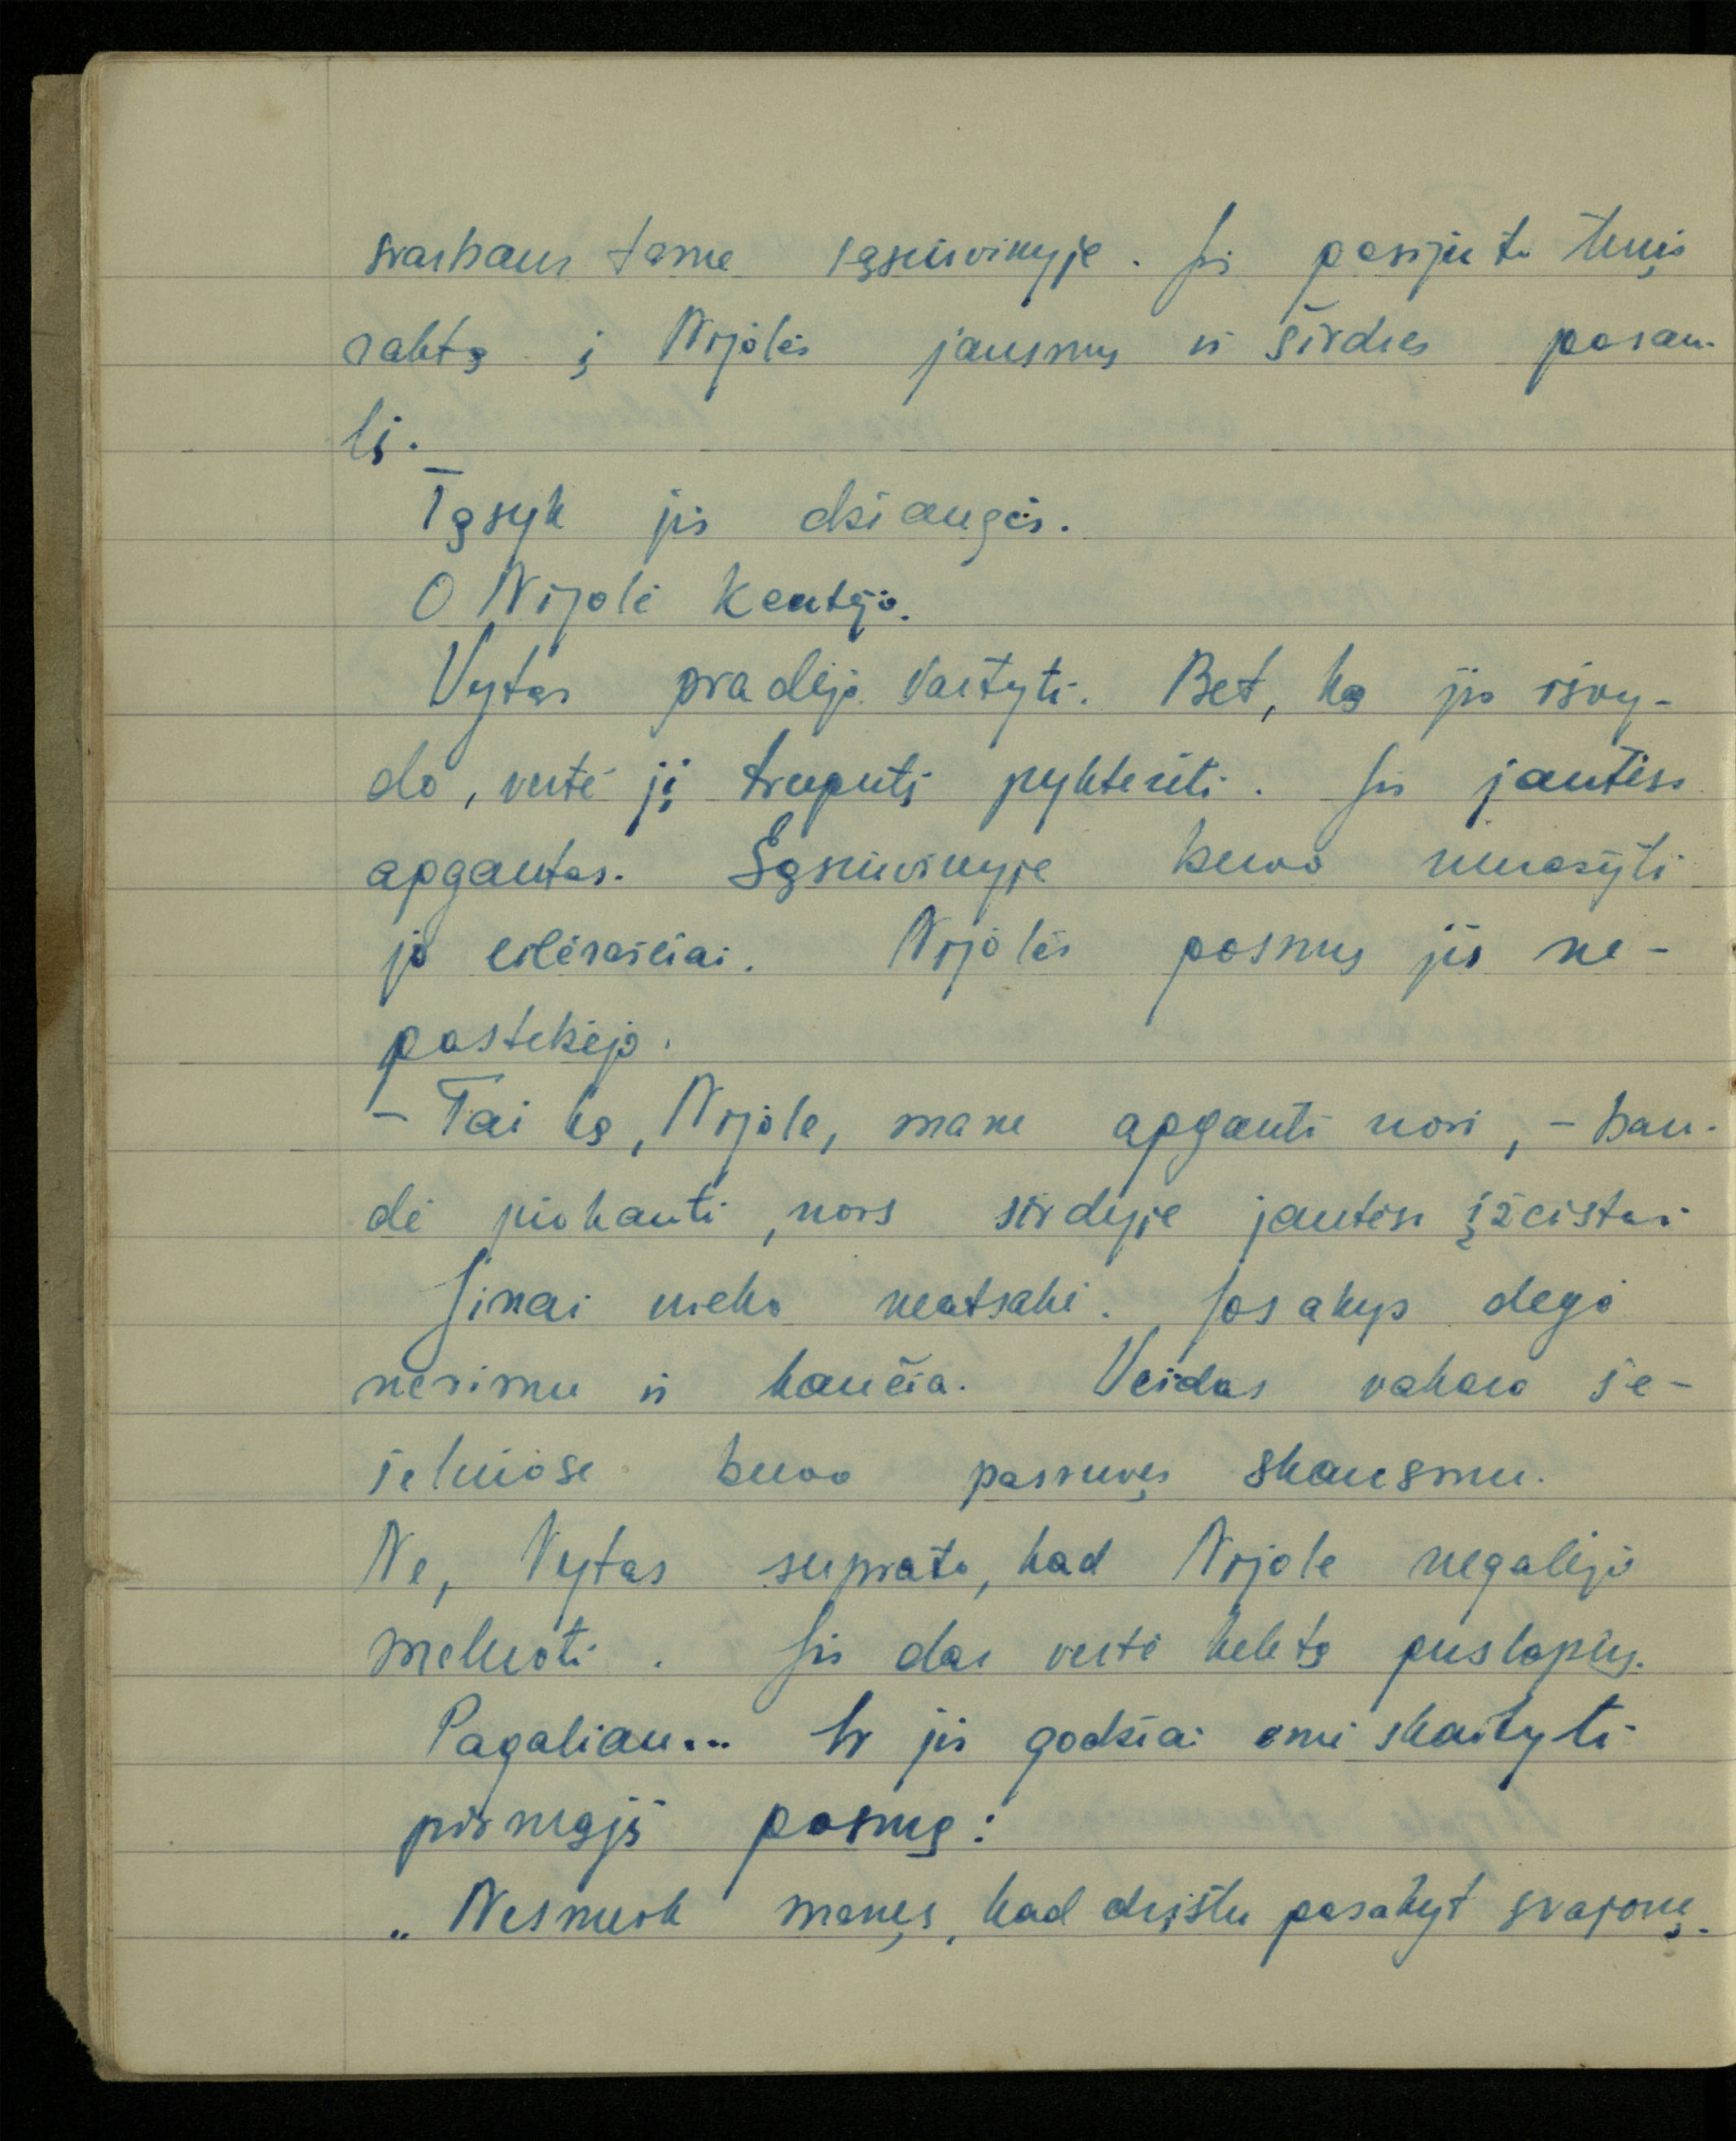 svarbaus tame sąsiuvinyje. Jis pasijuto turįs
raktą į Nijolės jausmų ir širdies pasau-
lį.
Tąsyk jis džiaugės.
O Nijolė kentėjo.
Vytas pradėjo vartyti. Bet, ką jis išvy-
do, vertė jį truputį pykterėti. Jis jautėsi
apgautas. Sąsiuvinyje buvo surašyti
jo eilėraščiai. Nijolės posmų jis ne-
pastebėjo.
– Tai ką, Nijole, mane apgauti nori, – ban-
dė juokauti, nors širdyje jautėsi įžeistas.
Jinai nieko neatsakė. Jos akys degė
nerimu ir kančia. Veidas vakaro še-
šėliuose buvo pasruvęs skausmu.
Ne, Vytas suprato, kad Nijolė negalėjo
meluoti. Jis dar vertė keletą puslapių.
Pagaliau... Ir jis godžiai ėmė skaityti
pirmąjį posmą:
„Nesmerk manęs, kad drįstu pasakyt svajonę.